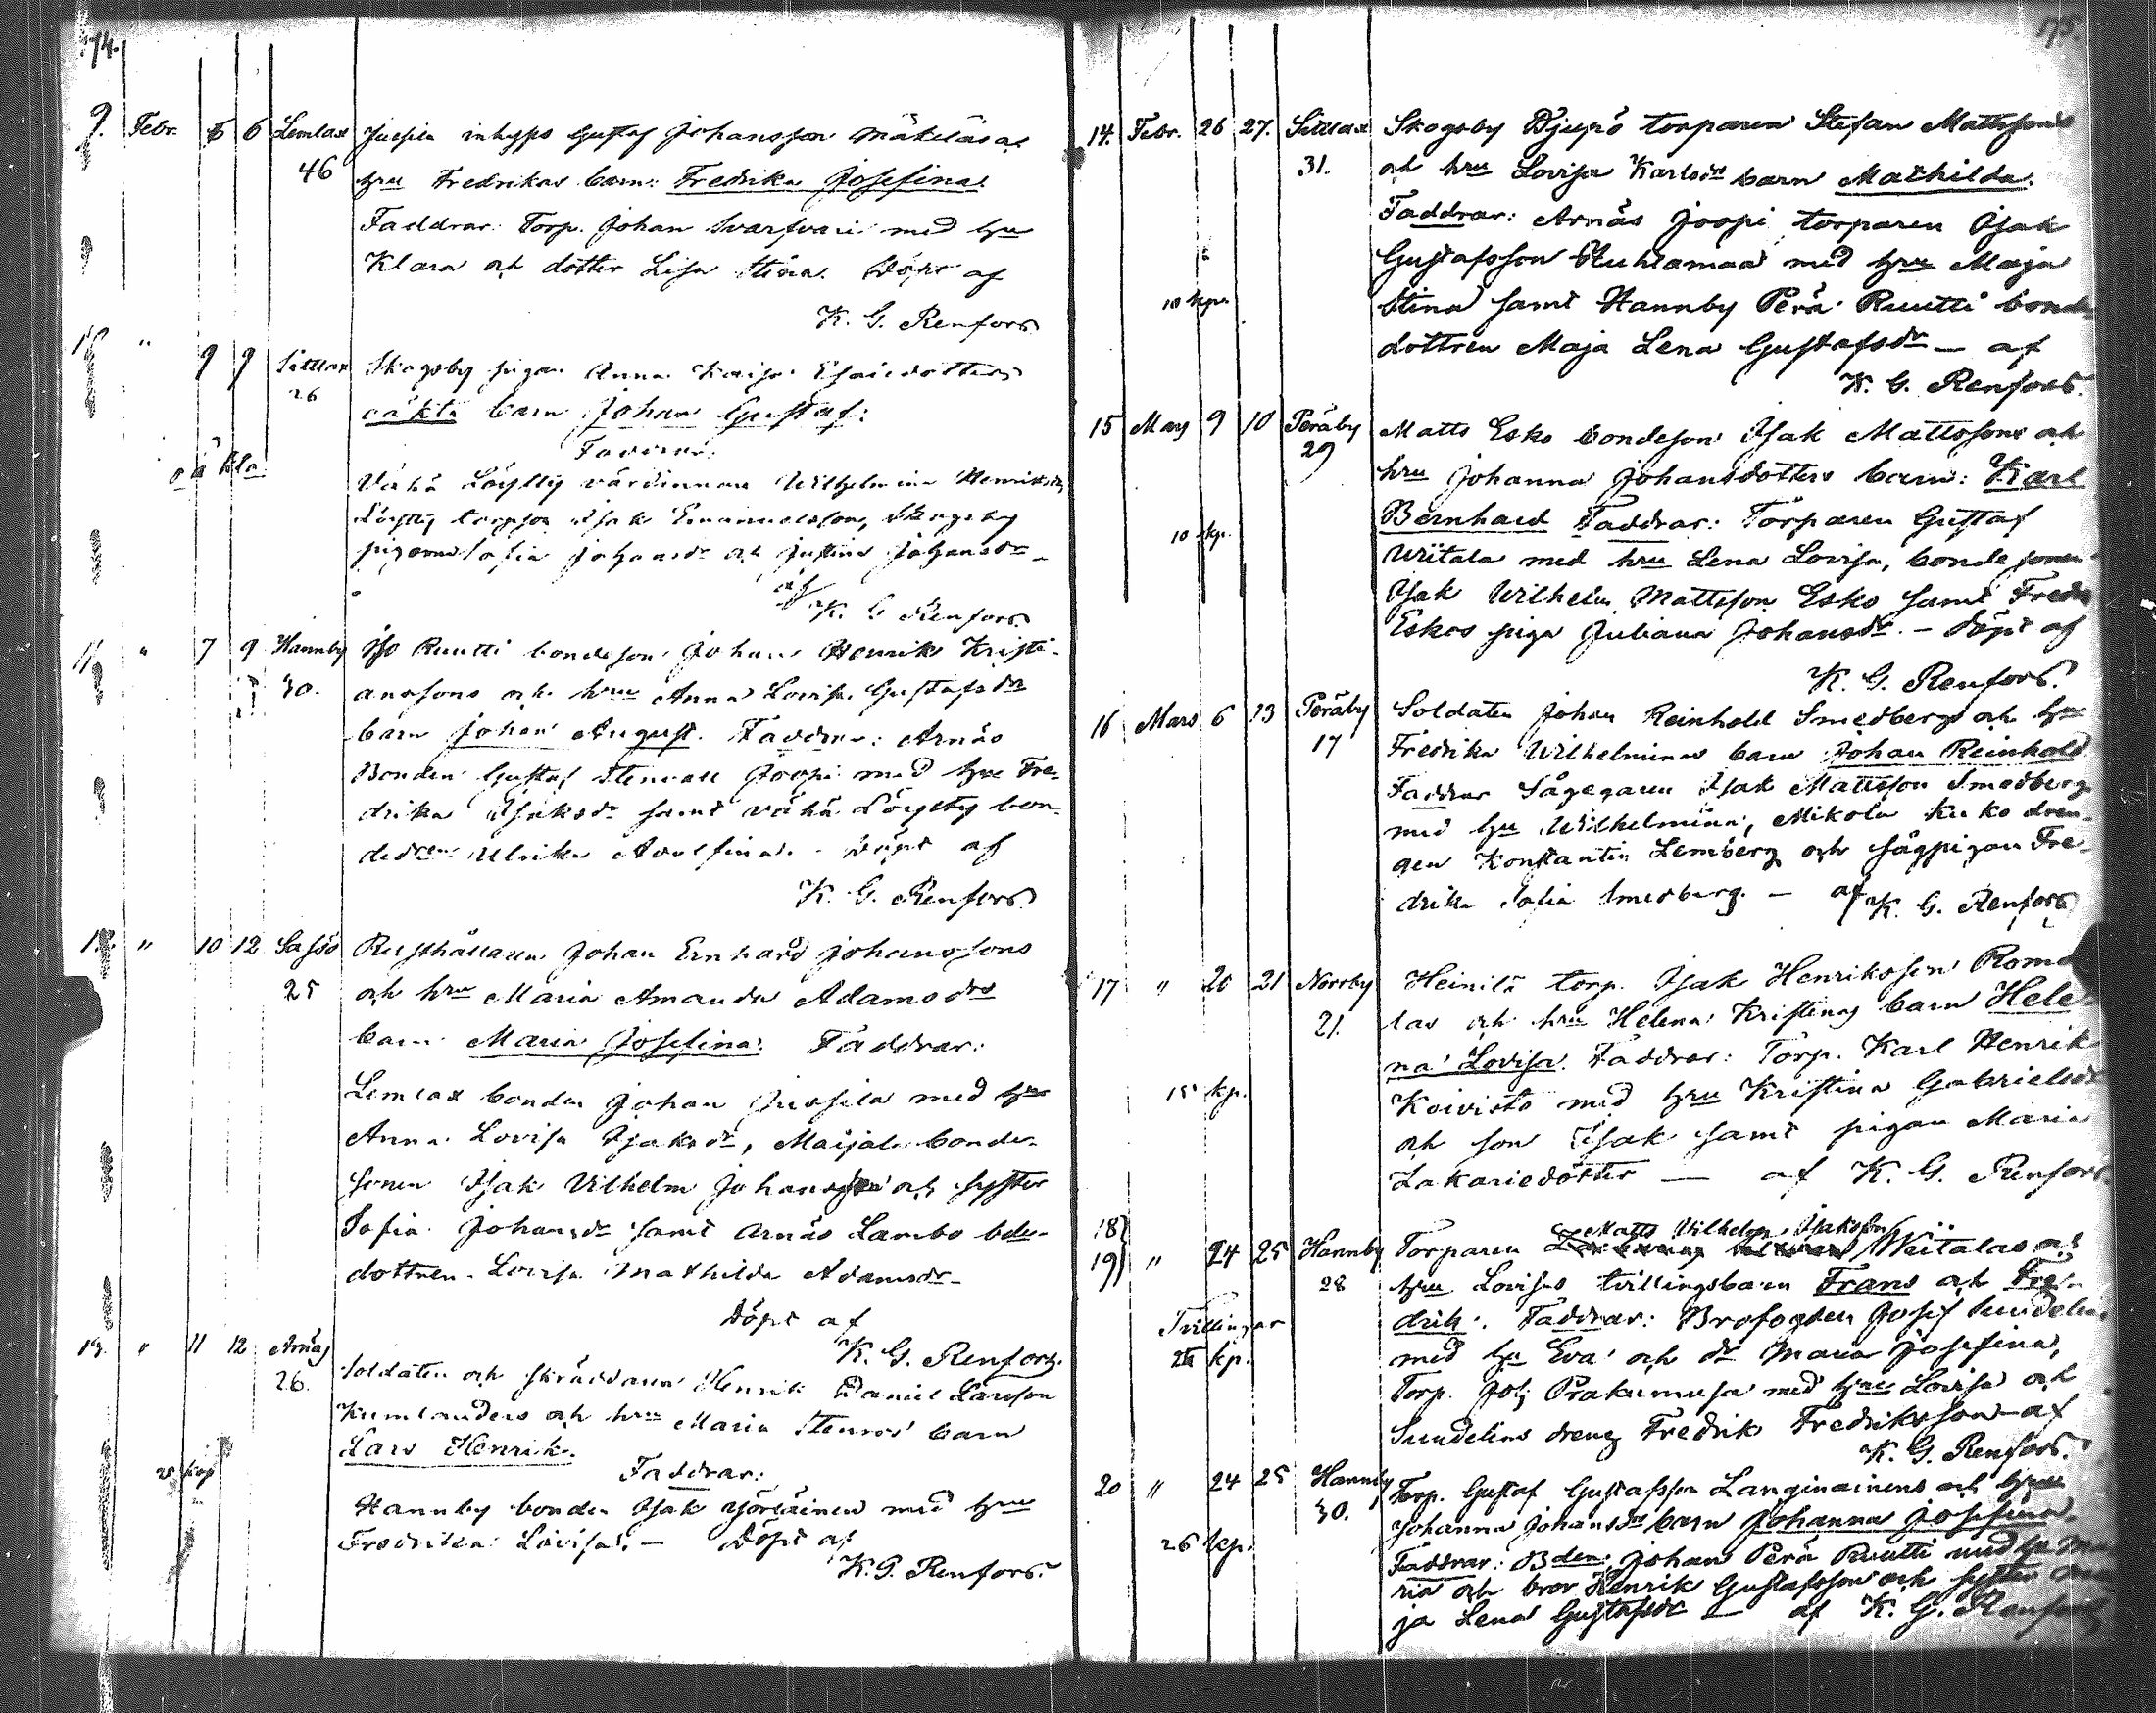 74.
9. Febr. 5 6 Lemlax inhyses Gustaf Johansson Mäkeläs och
46 hru Fredrikas barn: Fredrika Josefina.
Faddrar: Torp. Johan Svarfvari med hru
Klara och dotter Lisa Stina. Döpt af
K. G. Renfors
" 9 9 Sittlax Skogsby pigan Anna Kaisa Esaiedotters
26 oäkta barn Johan Gustaf:
Faddrar:
oäkta
Vähä Löytty värdinnan Wilhelmina Henriksdr,
Löytty torpson Isak Emanuelsson, Skogsby
pigorna Sofia Johansdr och Justina Johansdr –
af
K. G. Renfors
11 " 7 9 Hannby Iso Ruutti bondeson Johan Henrik Kristi-
30. anssons och hru Anna Lovisa Gustafsdrs
barn Johan August. Faddrar: Arnäs
Bonden Gustaf Stenvall Joopi med hru Fre-
drika Isaksdr samt Vähä Löyttty bon-
Ulrika Adolfina. – Döpt af
K. G. Renfors
12. " 10 12 Safsö Rusthållaren Johan Ernhard Johanssons
25 och hru Maria Amanda Adamsdrs
barn Maria Josefina. Faddrar:
Lemlax bonden Johan Jussila med hru
Anna Lovisa Isaksdr, Maijala bonde-
sonen Isak Vilhelm Johansson och syster
Sofia Johansdr samt Arnäs Lambo bde-
dottren Lovisa Mathilda Adamsdr –
Döpt af
K. G. Renfors.
13. " 11 12 Arnäs Soldaten och skräddaren Henrik Daniel Larsson
26. Kumlanders och hru Maria Stenroos barn
Lars Henrik.
25 kop Faddrar:
Hannby bonden Isak Yörläinen med hru
Fredrika Lovisa. – Döpt af
K. G. Renfors.
175.
14. Febr. 26 27. Sittlax Skogsby Bjurs torparen Stefan Mattssons
31. och hru Lovisa Karlsdrs barn Mathilda.
Faddrar: Arnäs Joopi torparen Isak
Gustafsson Huhtamaa med hru Maja
10 kp. Stina samt Hannby Perä Ruutti bonde
dottren Maja Lena Gustafsdr – af
K. G. Renfors.
15 Mars 9 10 Peräby Matts Esko bondeson Isak Mattssons och
29 hru Johanna Johansdotters barn: Karl
Bernhard Faddrar: Torparen Gustaf
10 kp. Wiitala med hru Lena Lovisa, bondesonen
Isak Wilhelm Mattsson Esko samt Freds
Eskos piga Juliana Johansdr. – Döpt af
K. G. Renfors.
16 Mars 6 13 Peräby Soldaten Johan Reinhold Smedbergs och hru
17 Fredrika Wilhelminas barn Johan Reinhold
Faddrar Sågegaren Isak Mattsson Smedberg
med hru Wilhelmina, Mikola Kuko dren-
gen Konstantin Lemberg och sågpigan Fre-
drika Sofia Smedberg. – af K. G. Renfors
17 " 20 21 Norrby Heinilä torp. Isak Henriksson Roma
21. las och hru Helena Kristinas barn Hele-
na Lovisa. Faddrar: Torp. Karl Henrik
15 kp. Koivisto med hru Kristina Gabrielsdr
och son Isak samt pigan Maria
Zakariedotter — af K. G. Renfors
18)
19) " 24 25 Hannby Torparen Matts Vilhelm Isaksson Wiitalas och
28 hru Lovisas tvillingsbarn Frans och Fre-
drik. Faddrar: Brofogden Josef Sundelin
Tvillingar med hru Eva och dr Maria Josefina,
kp. Torp. Joh Prakunmusa med hru Lovisa och
Sundelins dreng Fredrik Fredriksson – af
K. G. Renfors.
20 " 24 25 Hannby Torp. Gustaf Gustafsson Langinainens och hru
30. Johanna Johansdrs barn Johanna Josefina.
26 kp. Faddrar: Bden Johan Perä Ruutti med hu Ma
ria och bror Henrik Gustafsson och syster Ma
ja Lena Gustafsdr — af K. G. Renfors